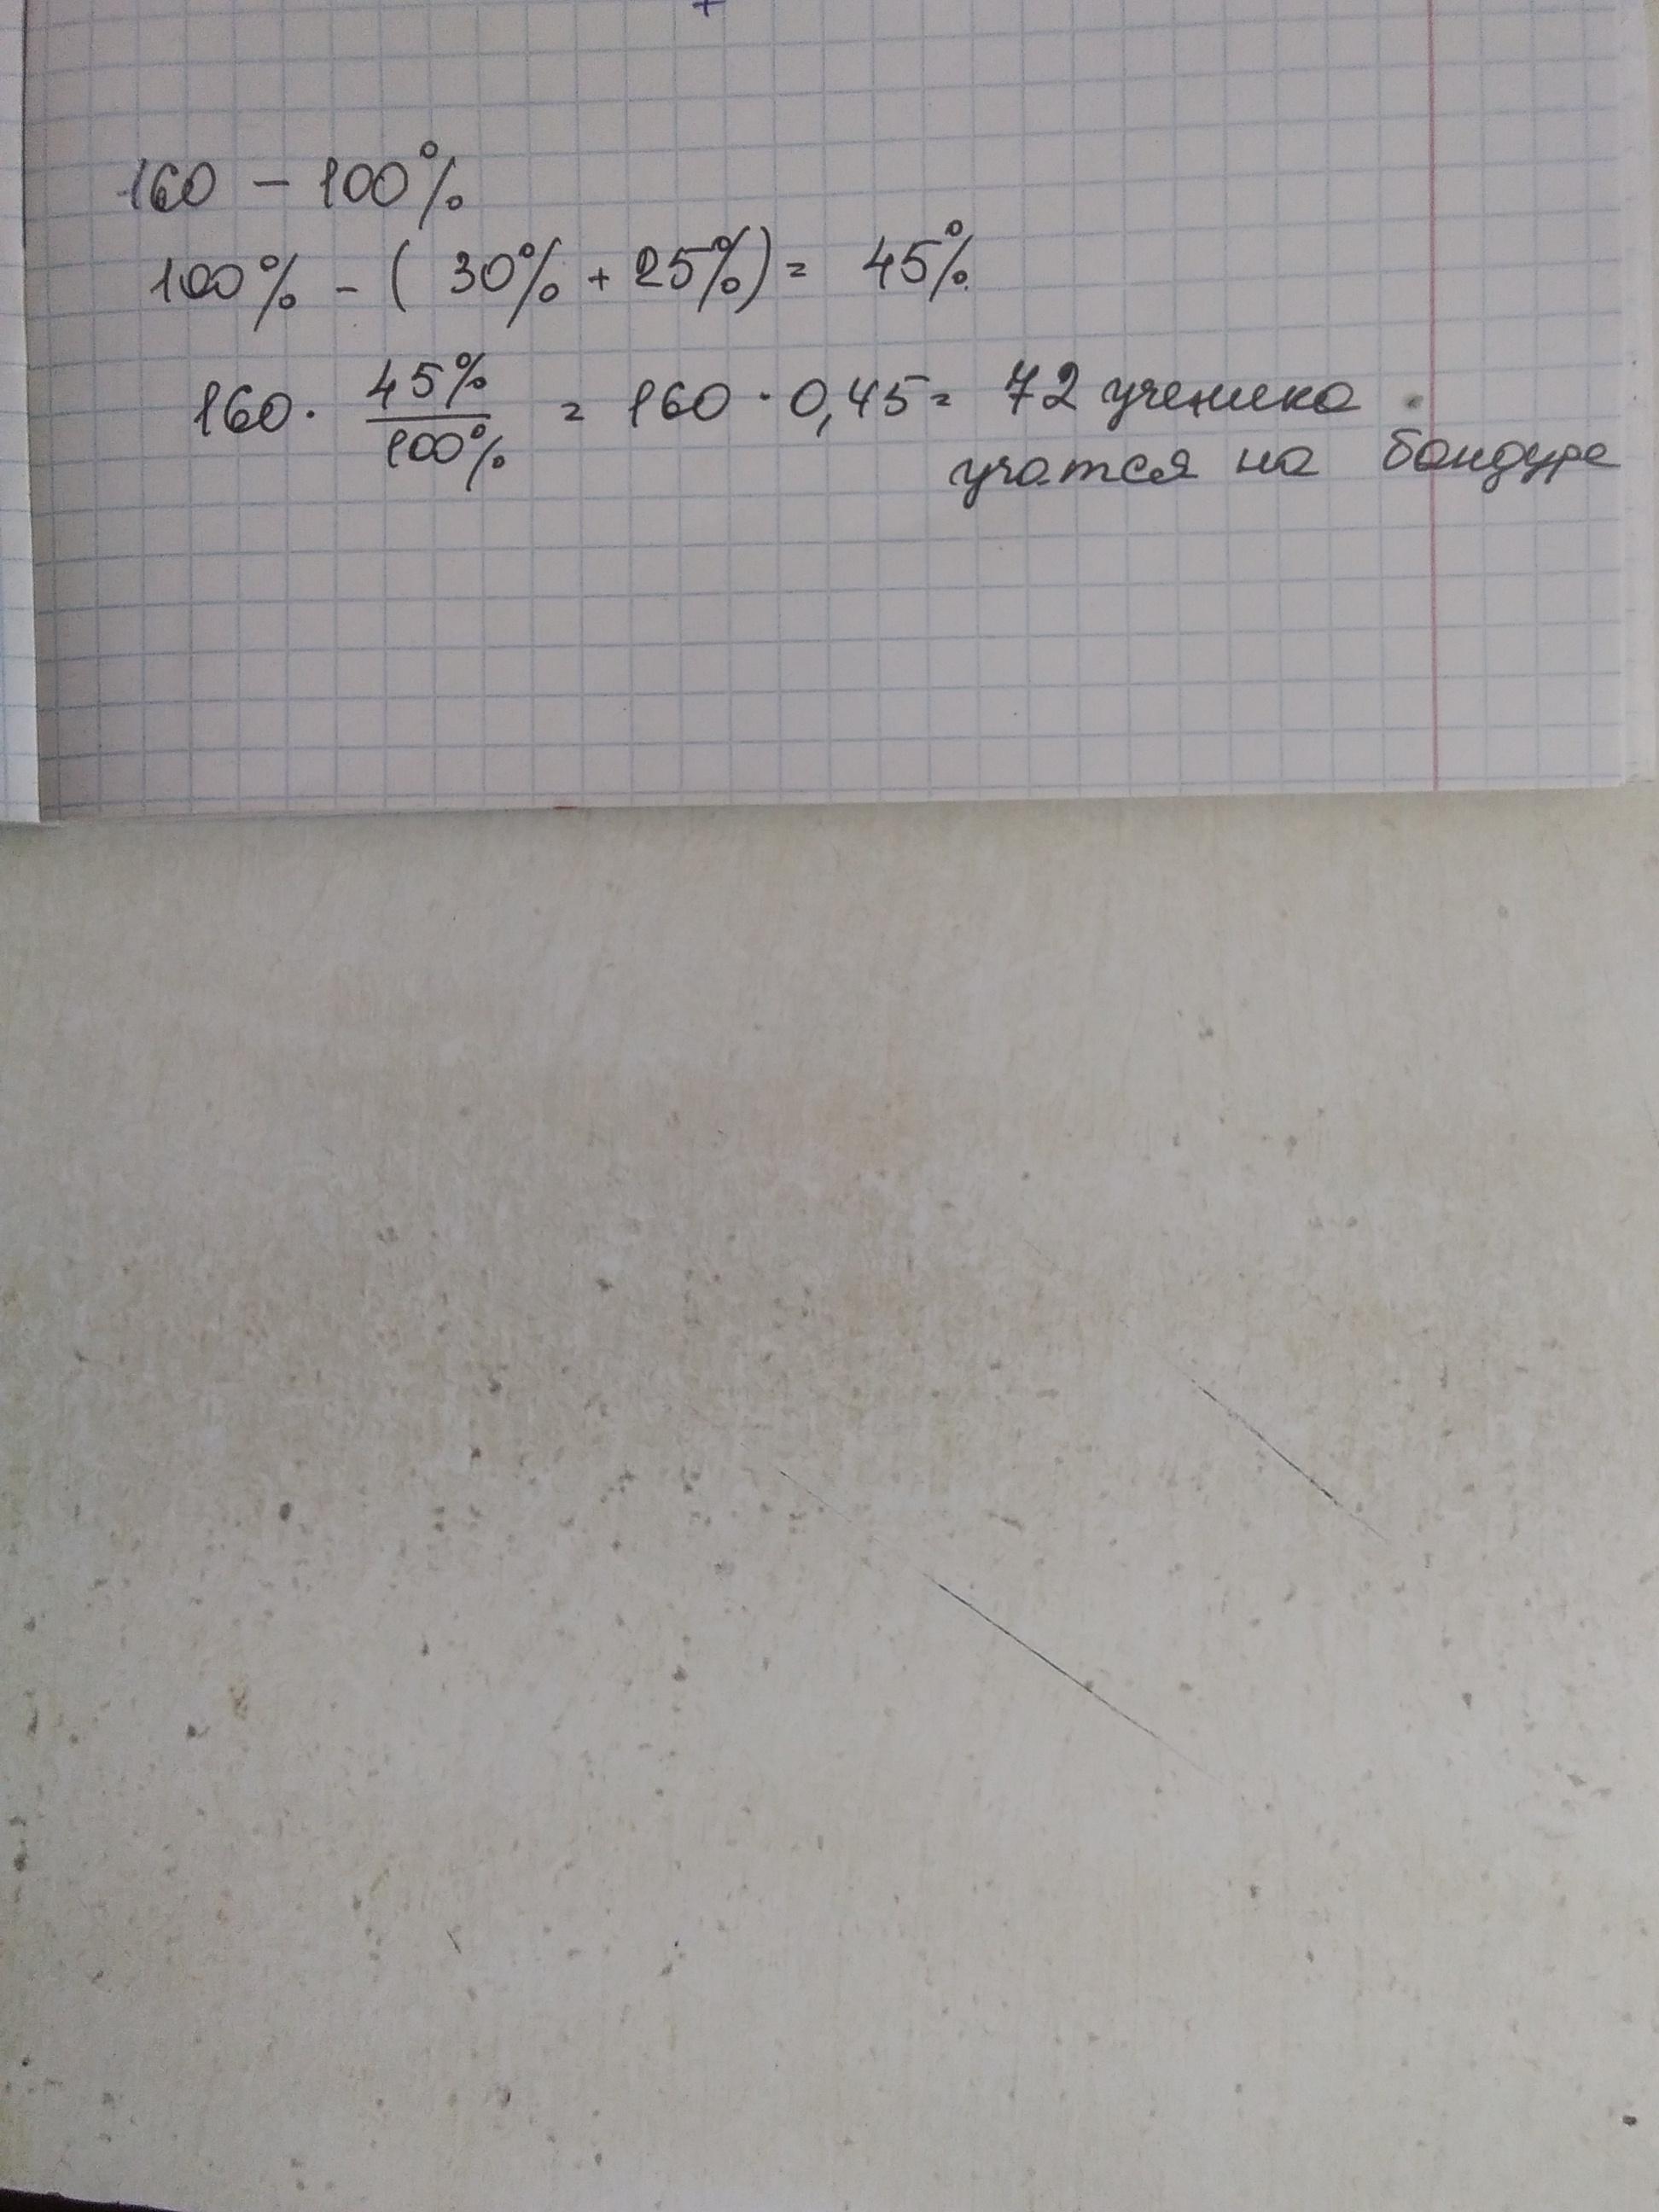 160 – 100%
100% - ( 30% + 25%) = 45%
160 · 45%/100% = 160 · 0,45 = 72 ученика
учатся на бандуре